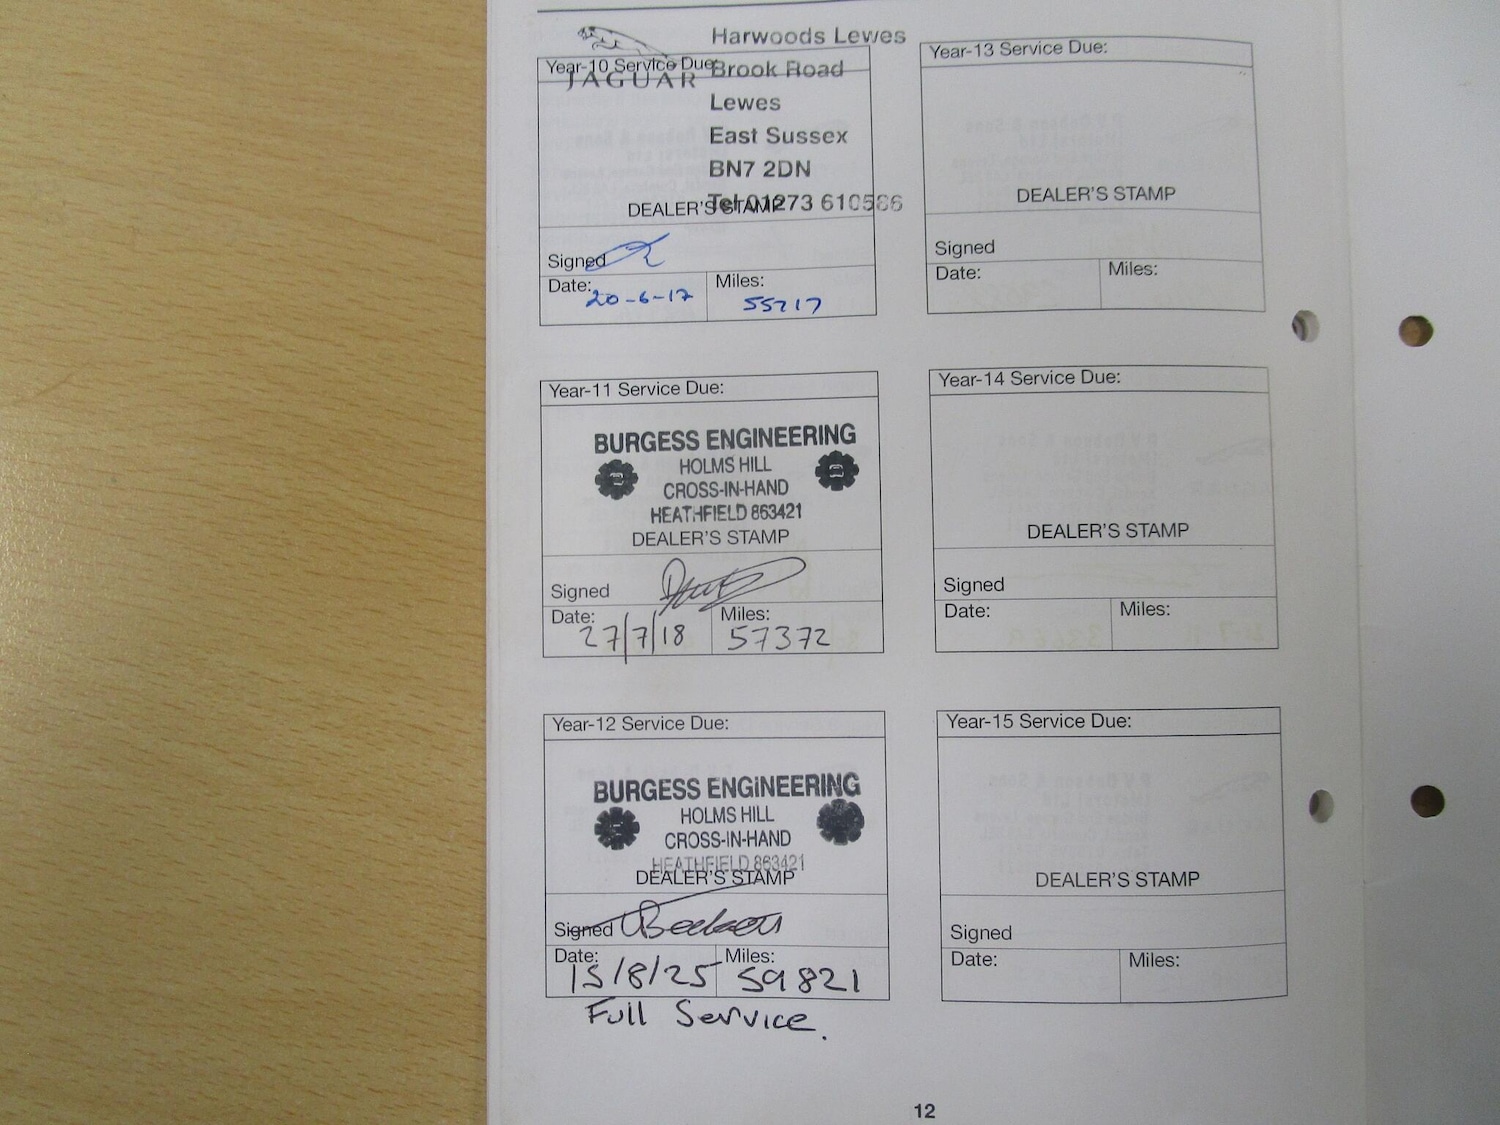 Harwoods Lewes
Year-10 Service Due:
Brook Road
JAGUAR
Lewes
East Sussex
BN7 2DN
Tel 01273 610586
DEALER'S STAMP
Signed
Date: 20-6-17
Miles: 55717
Year-11 Service Due:
BURGESS ENGINEERING
HOLMS HILL
CROSS-IN-HAND
HEATHFIELD 863421
DEALER'S STAMP
Signed
Date: 27/7/18
Miles: 57372
Year-12 Service Due:
BURGESS ENGiNEERING
HOLMS HILL
CROSS-IN-HAND
HEATHFIELD 863421
DEALER'S STAMP
Signed
Date: 15/8/25
Miles: 59821
Full Service.
Year-13 Service Due:
DEALER'S STAMP
Signed
Date:
Miles:
Year-14 Service Due:
DEALER'S STAMP
Signed
Date:
Miles:
Year-15 Service Due:
DEALER'S STAMP
Signed
Date:
Miles:
12